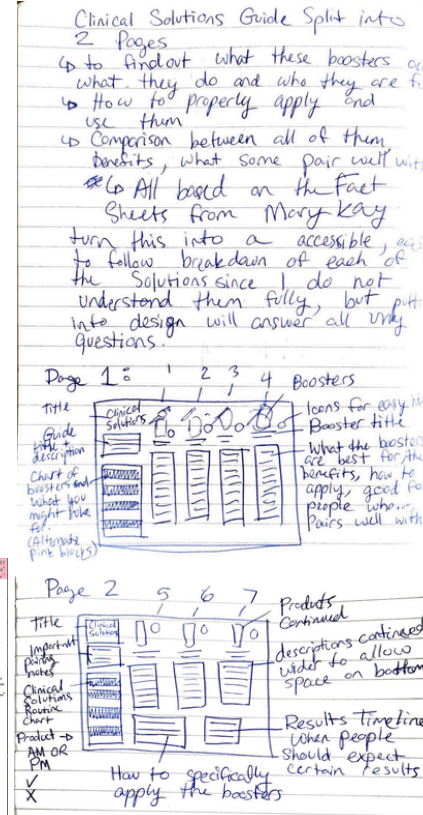 Clinical Solutions Guide Split into
2 Pages
↳ to find out what these boosters
what they do and who they are
↳ How to properly apply and
use them
↳ Comparison between all of them,
benefits, what some pair well with
*↳ All based on the Fact
Sheets from Mary Kay
turn this into a accessible,
to follow breakdown of each of
the Solutions since I do not
understand them fully, but
into design will answer all my
questions.
Page 1:
1 2 3 4 Boosters
Title
Guide
title +
description
Chart of
boosters and
what you
might
for.
(Alternate
Pink blocks)
Clinical
Solutions
Icons for easy
Booster title
What the boosters
are best for, the
benefits, how to
apply, good for
people who...
Pairs well with
Page 2
5 6 7
Title
Important
pairing
notes
Clinical
Solutions
Routine
chart
Product →
AM OR
PM
✓
X
Clinical
Solutions
Products
Continued
descriptions continued
wider to allow
space on bottom
Results Timeline
when people
should expect
certain results
How to specifically
apply the boosters